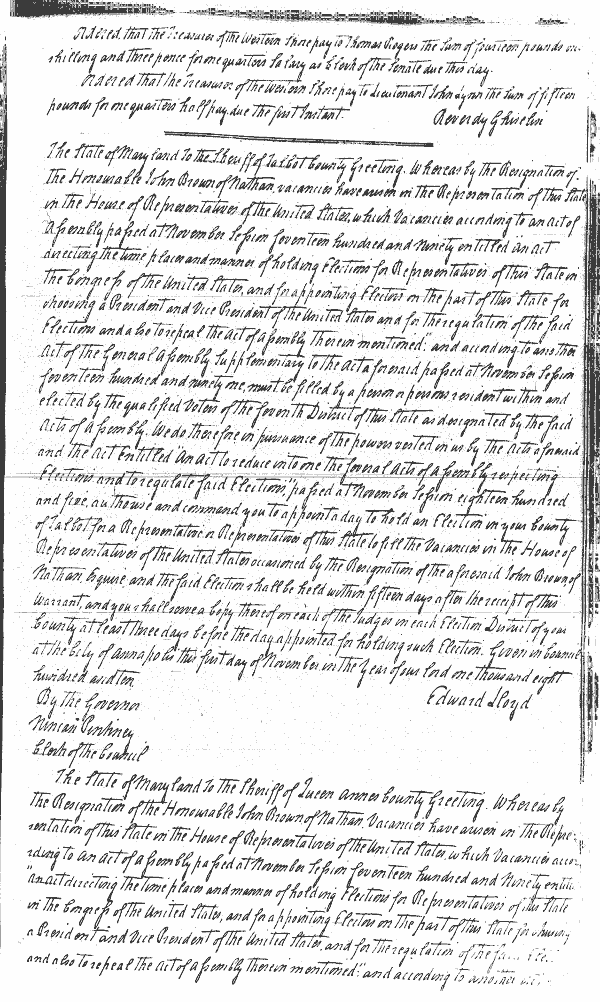 Ordered that the Treasurer of the Western Shore pay to Thomas Rogers the Sum of fourteen pounds
shilling and three pence for one quarters Salary as Clerk of the Senate due this day.
Ordered that the Treasurer of the Western Shore pay to Lieutenant John Lynn the Sum of fifteen
pounds for one quarters half pay due the first Instant. Reverdy Ghiselin
The State of Maryland To the Sheriff of Talbot County Greeting. Whereas by the Resignation of
the Honourable John Brown of Nathan, vacancies have arisen in the Representation of this State
in the House of Representatives of the United States, which Vacancies according to an act of
Assembly passed at November Session seventeen hundred and Ninety entitled an act
directing the time places and manner of holding Elections for Representatives of this State in
the Congress of the United States, and for appointing Electors on the part of this State for
choosing a President and Vice President of the United States and for the regulation of the said
Elections and also to repeal the Act of Assembly therein mentioned," and according to another
Act of the General Assembly Supplementary to the Act aforesaid passed at November Session
seventeen hundred and ninety one, must be filled by a person or persons resident within and
elected by the qualified Voters of the seventh District of this State as designated by the said
Acts of Assembly. We do therefore in pursuance of the powers vested in us by the Acts aforesaid
and the Act entitled "An Act to reduce into one the several Acts of Assembly respecting
Elections, and to regulate said Elections," passed at November Session eighteen hundred
and five, authorise and command you to appoint a day to hold an Election in your County
of Talbot for a Representative or Representatives of this State to fill the Vacancies in the House of
Representatives of the United States occasioned by the Resignation of the aforesaid John Brown of
Nathan, Esquire, and the said Election shall be held within fifteen days after the receipt of this
Warrant, and you shall serve a Copy thereof on each of the Judges in each Election District of your
County at least three days before the day appointed for holding such Election. Given in Council
at the City of Annapolis this first day of November in the Year of our Lord one thousand eight
hundred and ten
By the Governor Edward Lloyd
Ninian Pinkney
Clerk of the Council
The State of Maryland To the Sheriff of Queen Annes County Greeting. Whereas by
the Resignation of the Honourable John Brown of Nathan, Vacancies have arisen in the Repre-
sentation of this State in the House of Representatives of the United States, which Vacancies accor
rding to an Act of Assembly passed at November Session seventeen hundred and Ninety
"An act directing the time places and manner of holding Elections for Representatives of this State
in the Congress of the United States, and for appointing Electors on the part of this State for choosing
a President and Vice President of the United States, and for the regulation of the said
and also to repeal the Act of Assembly therein mentioned," and according to another